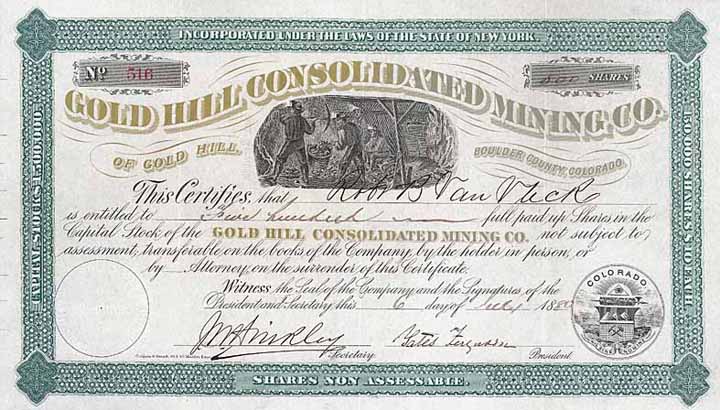 INCORPORATED UNDER THE LAWS OF THE STATE OF NEW YORK.
No 516
500 SHARES
GOLD HILL CONSOLIDATED MINING CO.
OF GOLD HILL,
BOULDER COUNTY, COLORADO.
This Certifies, that Robt B Van Vleck
is entitled to Five hundred full paid up Shares in the
Capital Stock of the GOLD HILL CONSOLIDATED MINING CO. not subject to
assessment, transferable on the books of the Company, by the holder in person, or
by Attorney, on the surrender of this Certificate.
Witness the Seal of the Company and the Signatures of the
President and Secretary this 6 day of July 188
J M Hinkley
Secretary
Yates Ferguson
President
COLORADO.
CAPITAL STOCK $1,500,000.
150,000 SHARES, $10 EACH.
SHARES NON ASSESSABLE.